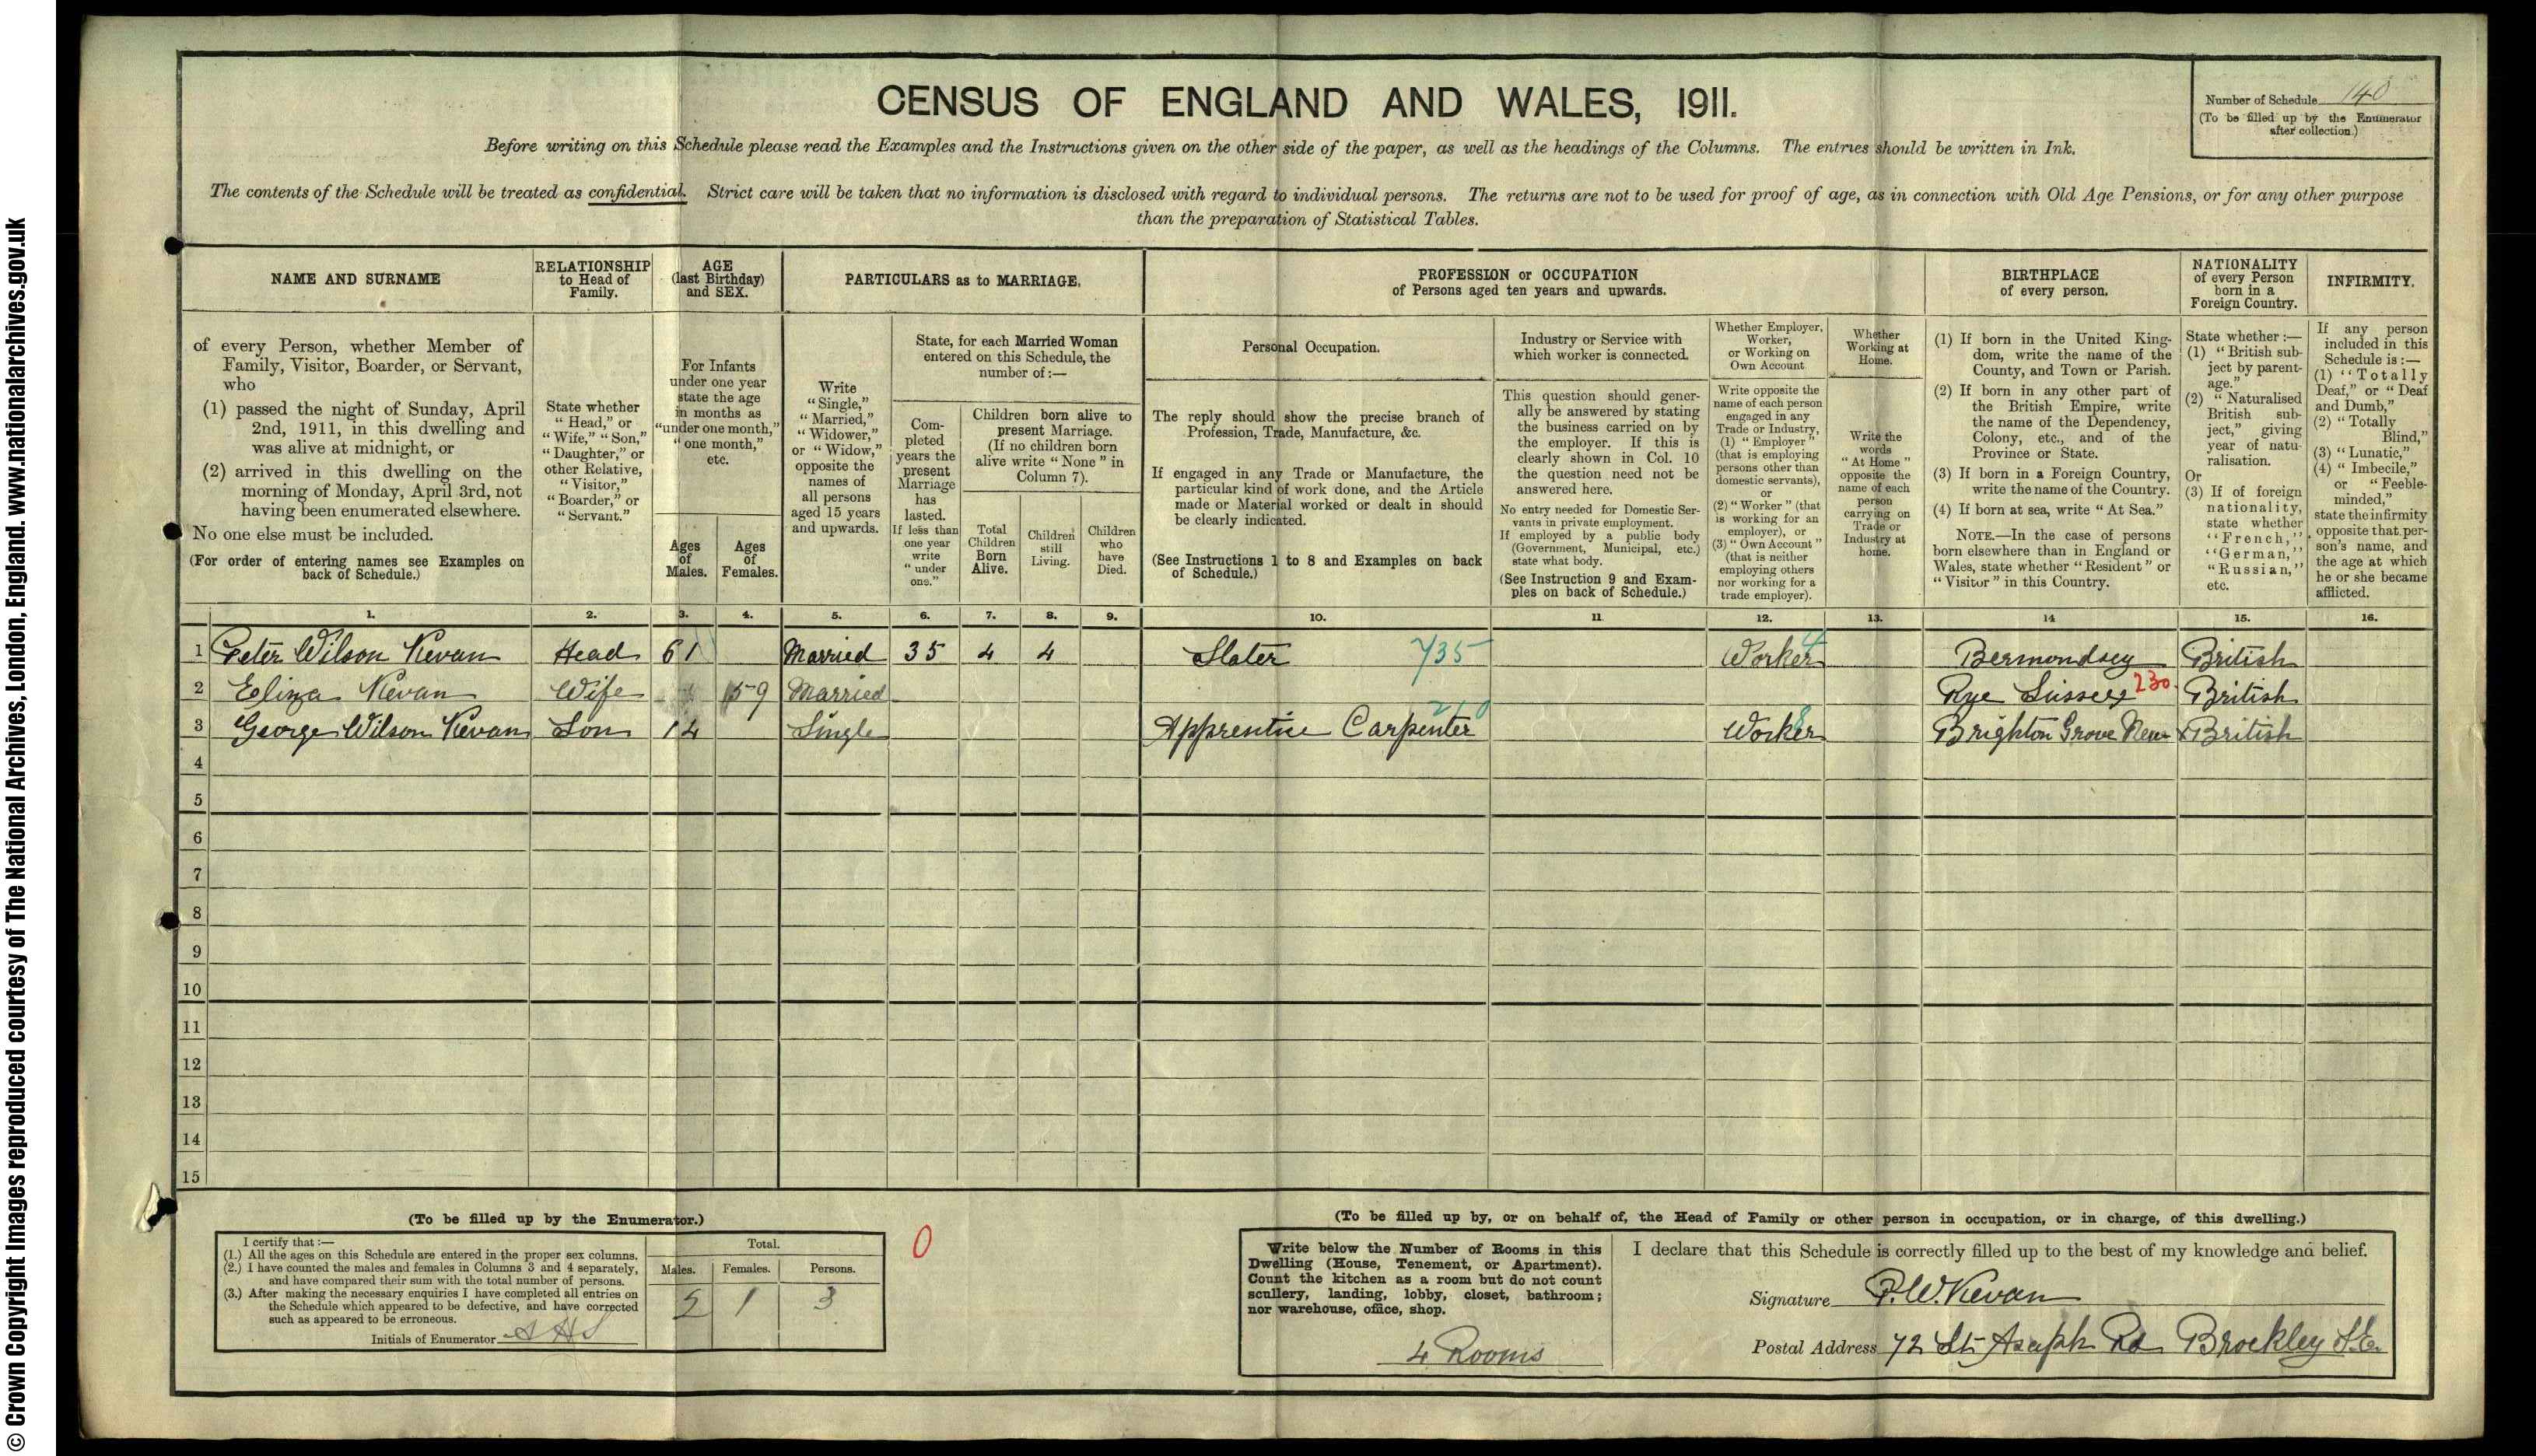 © Crown Copyright Images reproduced courtesy of The National Archives, London, England. www.nationalarchives.gov.uk
CENSUS OF ENGLAND AND WALES, 1911.
Number of Schedule 140
(To be filled up by the Enumerator
after collection.)
Before writing on this Schedule please read the Examples and the Instructions given on the other side of the paper, as well as the headings of the Columns. The entries should be written in Ink.
The contents of the Schedule will be treated as confidential. Strict care will be taken that no information is disclosed with regard to individual persons. The returns are not to be used for proof of age, as in connection with Old Age Pensions, or for any other purpose
than the preparation of Statistical Tables.
NAME AND SURNAME
of every Person, whether Member of
Family, Visitor, Boarder, or Servant,
who
(1) passed the night of Sunday, April
2nd, 1911, in this dwelling and
was alive at midnight, or
(2) arrived in this dwelling on the
morning of Monday, April 3rd, not
having been enumerated elsewhere.
No one else must be included.
(For order of entering names see Examples on
back of Schedule.)
RELATIONSHIP
to Head of
Family.
State whether
"Head," or
"Wife," "Son,"
"Daughter," or
other Relative,
"Visitor,"
"Boarder," or
"Servant."
AGE
(last Birthday)
and SEX.
For Infants
under one year
state the age
in months as
"under one month,"
"one month,"
etc.
Ages
of
Males.
Ages
of
Females.
PARTICULARS as to MARRIAGE.
Write
"Single,"
"Married,"
"Widower,"
or "Widow,"
opposite the
names of
all persons
aged 15 years
and upwards.
State, for each Married Woman
entered on this Schedule, the
number of:—
Com-
pleted
years the
present
Marriage
has
lasted.
If less than
one year
write
"under
one."
Children born alive to
present Marriage.
(If no children born
alive write "None" in
Column 7).
Total
Children
Born
Alive.
Children
still
Living.
Children
who
have
Died.
PROFESSION or OCCUPATION
of Persons aged ten years and upwards.
Personal Occupation.
The reply should show the precise branch of
Profession, Trade, Manufacture, &c.
If engaged in any Trade or Manufacture, the
particular kind of work done, and the Article
made or Material worked or dealt in should
be clearly indicated.
(See Instructions 1 to 8 and Examples on back
of Schedule.)
Industry or Service with
which worker is connected.
This question should gener-
ally be answered by stating
the business carried on by
the employer. If this is
clearly shown in Col. 10
the question need not be
answered here.
No entry needed for Domestic Ser-
vants in private employment.
If employed by a public body
(Government, Municipal, etc.)
state what body.
(See Instruction 9 and Exam-
ples on back of Schedule.)
Whether Employer,
Worker,
or Working on
Own Account
Write opposite the
name of each person
engaged in any
Trade or Industry,
(1) "Employer"
(that is employing
persons other than
domestic servants),
or
(2) "Worker" (that
is working for an
employer), or
(3) "Own Account"
(that is neither
employing others
nor working for a
trade employer).
Whether
Working at
Home.
Write the
words
"At Home"
opposite the
name of each
person
carrying on
Trade or
Industry at
home.
BIRTHPLACE
of every person.
(1) If born in the United King-
dom, write the name of the
County, and Town or Parish.
(2) If born in any other part of
the British Empire, write
the name of the Dependency,
Colony, etc., and of the
Province or State.
(3) If born in a Foreign Country,
write the name of the Country.
(4) If born at sea, write "At Sea."
NOTE.—In the case of persons
born elsewhere than in England or
Wales, state whether "Resident" or
"Visitor" in this Country.
NATIONALITY
of every Person
born in a
Foreign Country.
State whether:—
(1) "British sub-
ject by parent-
age."
(2) "Naturalised
British sub-
ject," giving
year of natu-
ralisation.
Or
(3) If of foreign
nationality,
state whether
"French,"
"German,"
"Russian,"
etc.
INFIRMITY.
If any person
included in this
Schedule is:—
(1) "Totally
Deaf," or "Deaf
and Dumb,"
(2) "Totally
Blind,"
(3) "Lunatic,"
(4) "Imbecile,"
or "Feeble-
minded,"
state the infirmity
opposite that per-
son's name, and
the age at which
he or she became
afflicted.
1. 2. 3. 4. 5. 6. 7. 8. 9. 10. 11 12. 13. 14 15. 16.
1 Peter Wilson Kevan Head 61 Married 35 4 4 Slater 735 Worker Bermondsey British
2 Eliza Kevan Wife 59 Married Rye Sussex 230 British
3 George Wilson Kevan Son 14 Single Apprentice Carpenter 210 Worker Brighton Grove New X British
4
5
6
7
8
9
10
11
12
13
14
15
(To be filled up by the Enumerator.)
I certify that:—
(1.) All the ages on this Schedule are entered in the proper sex columns.
(2.) I have counted the males and females in Columns 3 and 4 separately,
and have compared their sum with the total number of persons.
(3.) After making the necessary enquiries I have completed all entries on
the Schedule which appeared to be defective, and have corrected
such as appeared to be erroneous.
Initials of Enumerator
Total.
Males. Females. Persons.
2 1 3
0
(To be filled up by, or on behalf of, the Head of Family or other person in occupation, or in charge, of this dwelling.)
Write below the Number of Rooms in this
Dwelling (House, Tenement, or Apartment).
Count the kitchen as a room but do not count
scullery, landing, lobby, closet, bathroom;
nor warehouse, office, shop.
4 Rooms
I declare that this Schedule is correctly filled up to the best of my knowledge and belief.
Signature P. W. Kevan
Postal Address 72 St Asaph Rd Brockley S.E.